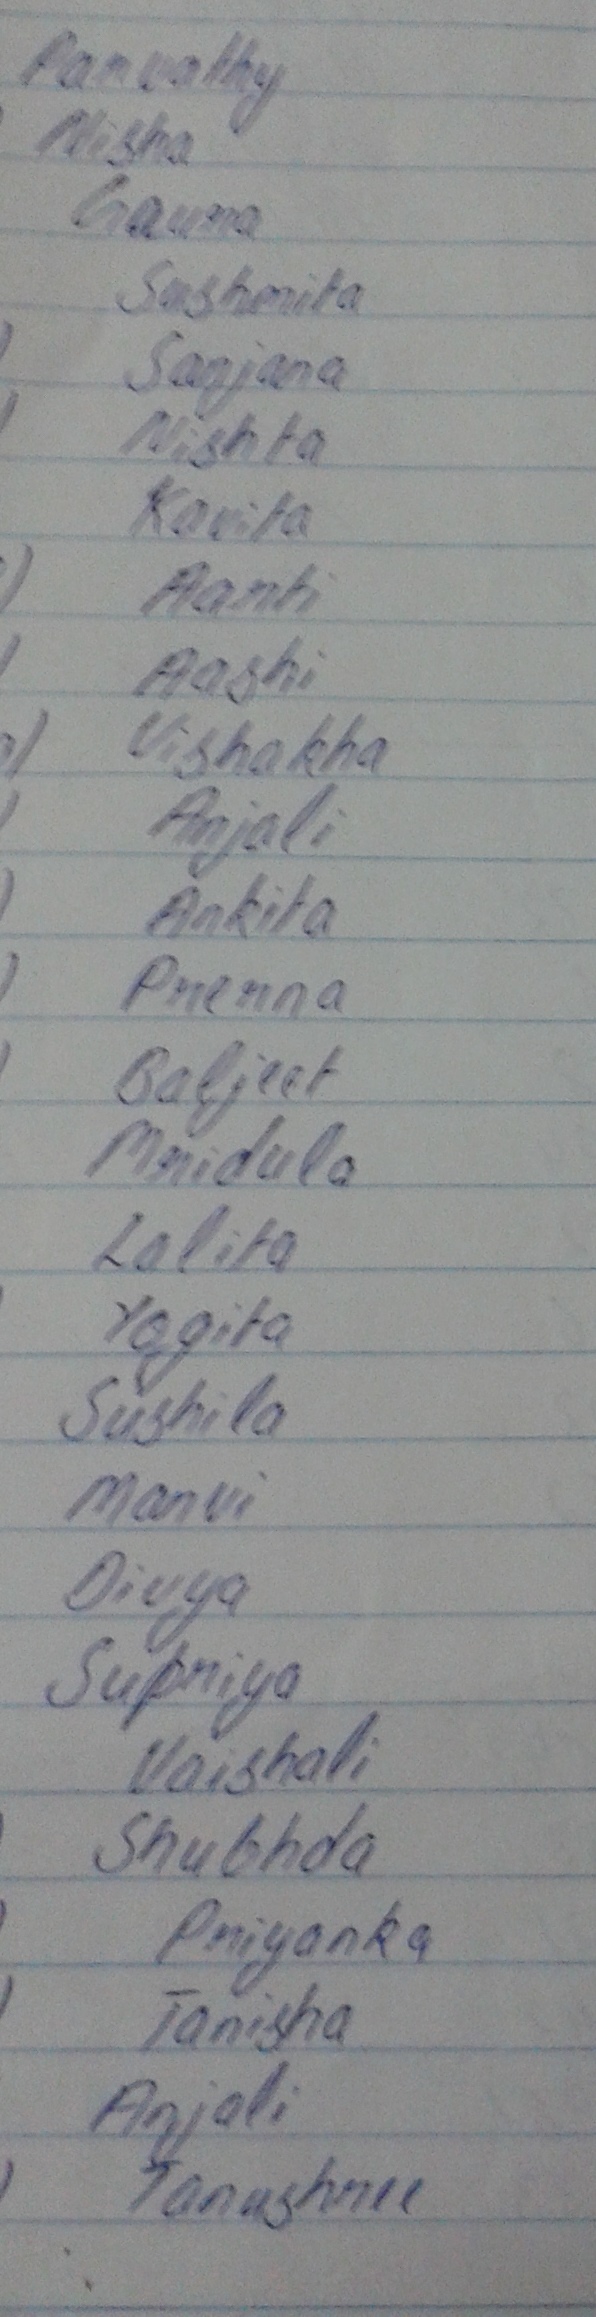 Parvathy
Nisha
Gauma
Sushmita
Sanjana
Nishta
Kavita
Aarti
Aashi
Vishakha
Anjali
Ankita
Prerna
Baljeet
Mridula
Lalita
Yogita
Sushila
Manvi
Divya
Supriya
Vaishali
Shubhda
Priyanka
Tanisha
Anjali
Tanushree